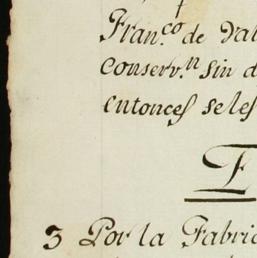 Fran.co de Val
conserv.n sin d
entonces se les
E
3 Por la Fabric